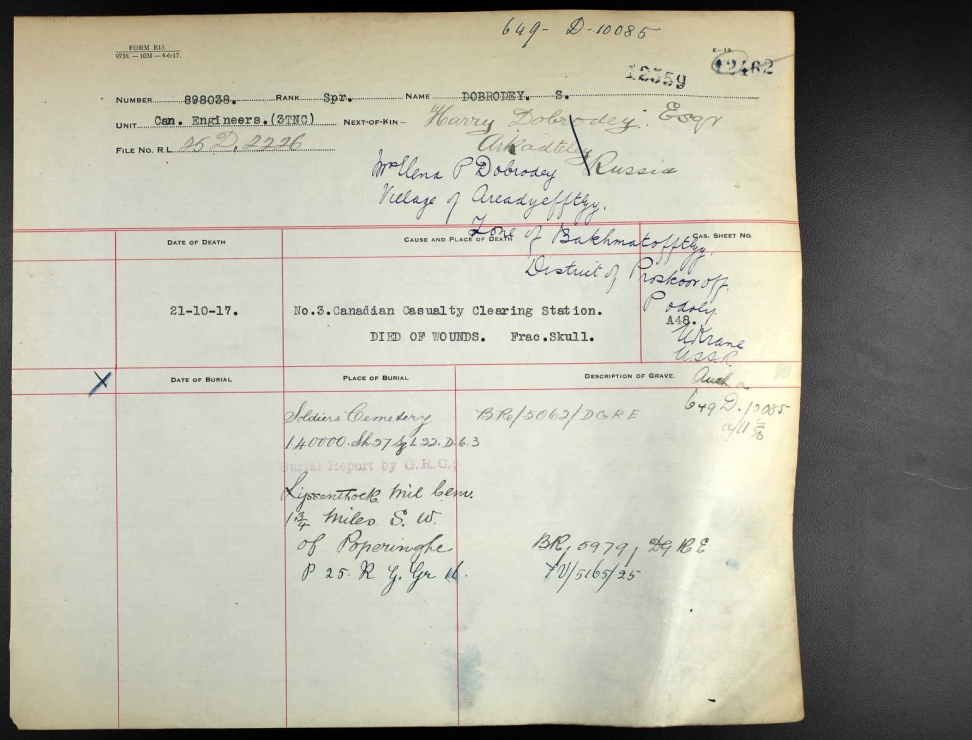 649- D-10085
FORM E13.
9758.—10M—6-6-17.
E—13.
12559 12462
NUMBER 898038. RANK Spr. NAME DOBRODEY. S.
UNIT Can. Engineers.(3TNC) NEXT-OF-KIN— Harry Dobrodey. Esqr
FILE NO. R.L. 25 D. 2226 Russia
Mrs Elena P Dobrodey
Village of Areadyefftzy.
Zone of Bakhmatofftzy.
District of Proskooroff
Podoly.
Ukrane
U.S.S.R.
DATE OF DEATH CAUSE AND PLACE OF DEATH CAS. SHEET NO.
21-10-17. No.3.Canadian Casualty Clearing Station. A48.
DIED OF WOUNDS. Frac.Skull.
X DATE OF BURIAL PLACE OF BURIAL DESCRIPTION OF GRAVE.
649 D.10085
Soldiers Cemetery BRe/5062/DGRE
1.40000. Sh 27 L.22.D.6.3
Burial Report by G.R.C.:
Lyssenthoek Mil Cem.
1 3/4 Miles S. W.
of Poperinghe BR, 5979, DGRE
P 25. R G. Gr 16. /5165/25